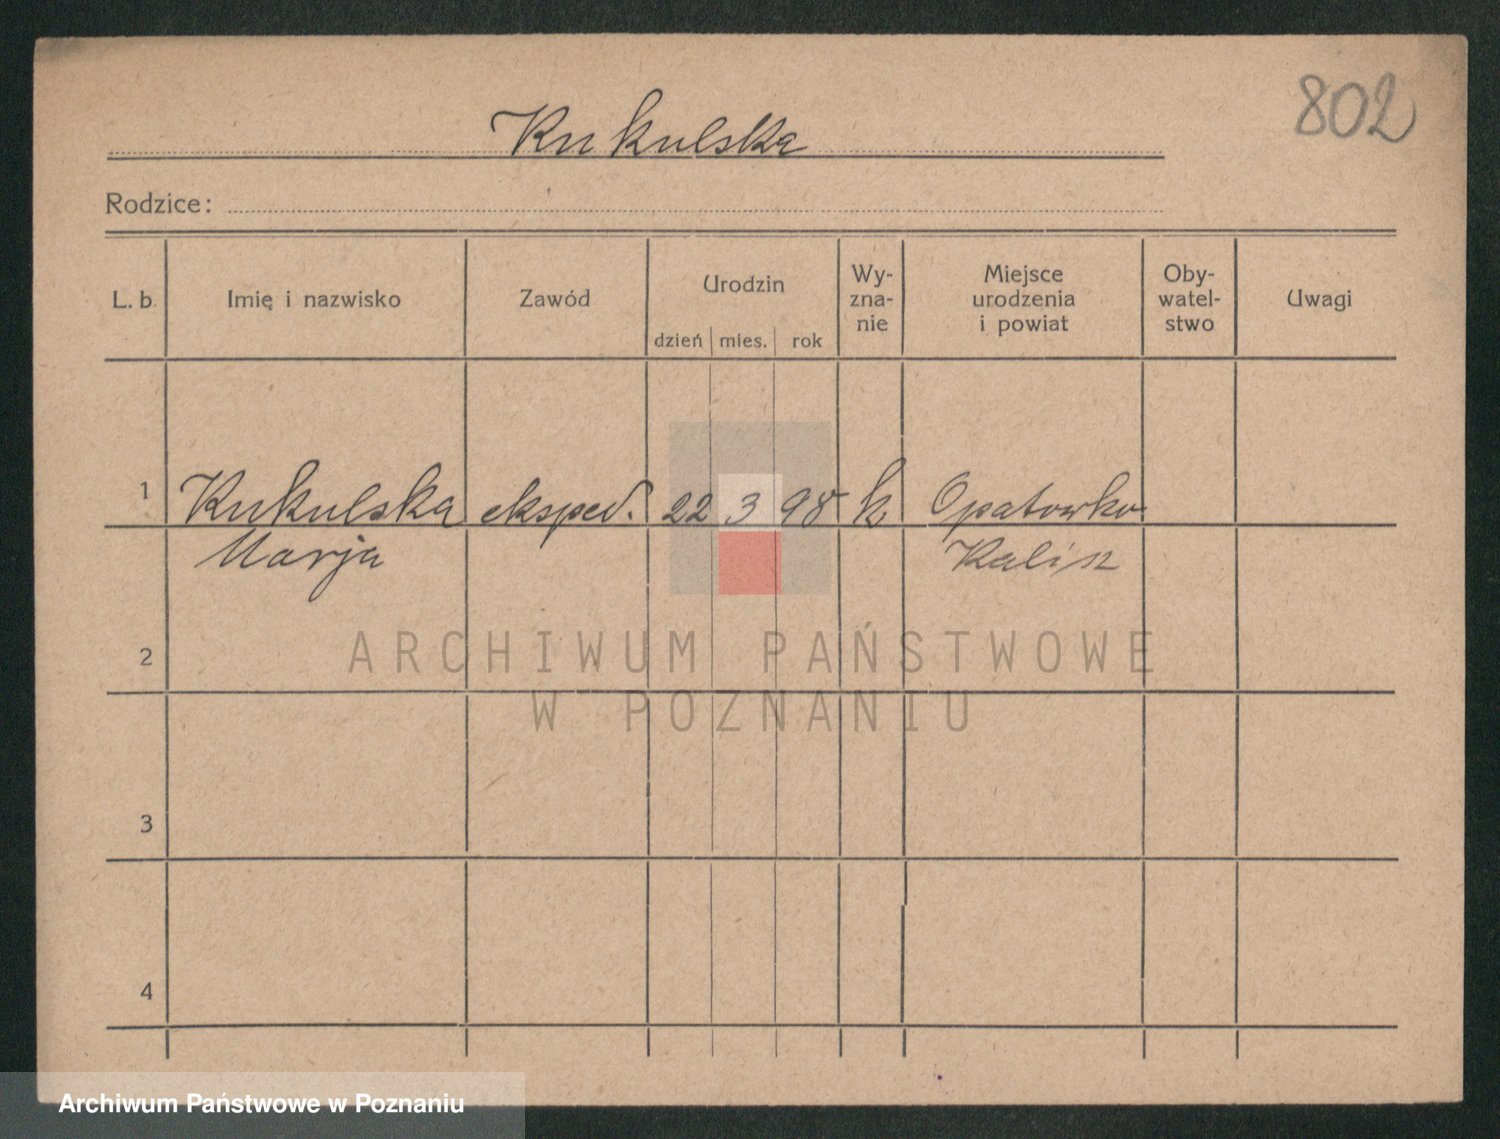 802
Kukulska
Rodzice:
L. b. Imię i nazwisko Zawód Urodzin dzień mies. rok Wy-zna-nie Miejsce urodzenia i powiat Oby-watel-stwo Uwagi
1 Kukulska eksped. 22 3 98 k Opatowko
Marja Kalisz
2
ARCHIWUM PAŃSTWOWE
W POZNANIU
3
4
Archiwum Państwowe w Poznaniu